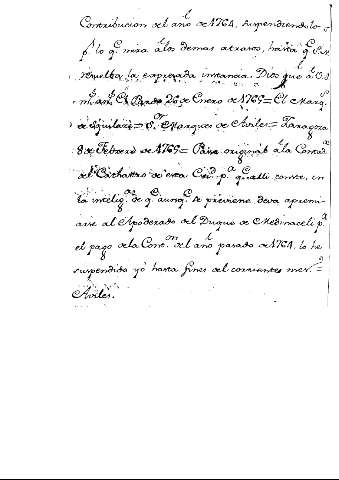 Contribucion del año de 1764, suspendiendolo
p.r lo q.e mira a los demas atrasos, hasta q.e S.M.
resuelba la expresada instancia. Dios gue a V.S.
m.s an.s El Pardo 26 de Enero de 1765 = El Marq.s
de Squilace = S.or Marques de Aviles = Zaragoza
8 de Febrero de 1765 = Pase original a la Contad.a
del Cathastro de esta Ciud.d p.a q.e alli conste, en
la intelig.a de q.e aunq.e se previene deva apremi-
arse al Apoderado del Duque de Medinaceli p.a
el pago de la Cont.on del año pasado de 1764, lo he
suspendido yo hasta fines del corriente mes =
Aviles.